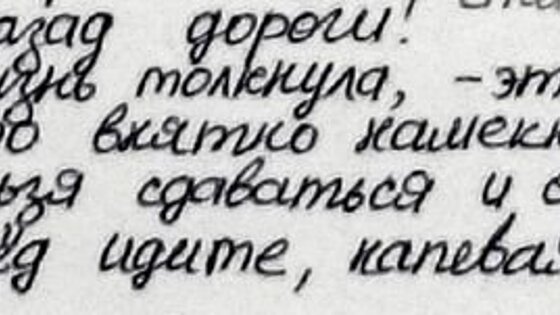 азад дороги!
изнь толкнула, – эт
о внятно намекн
ьзя сдаваться и с
ед идите, напевая